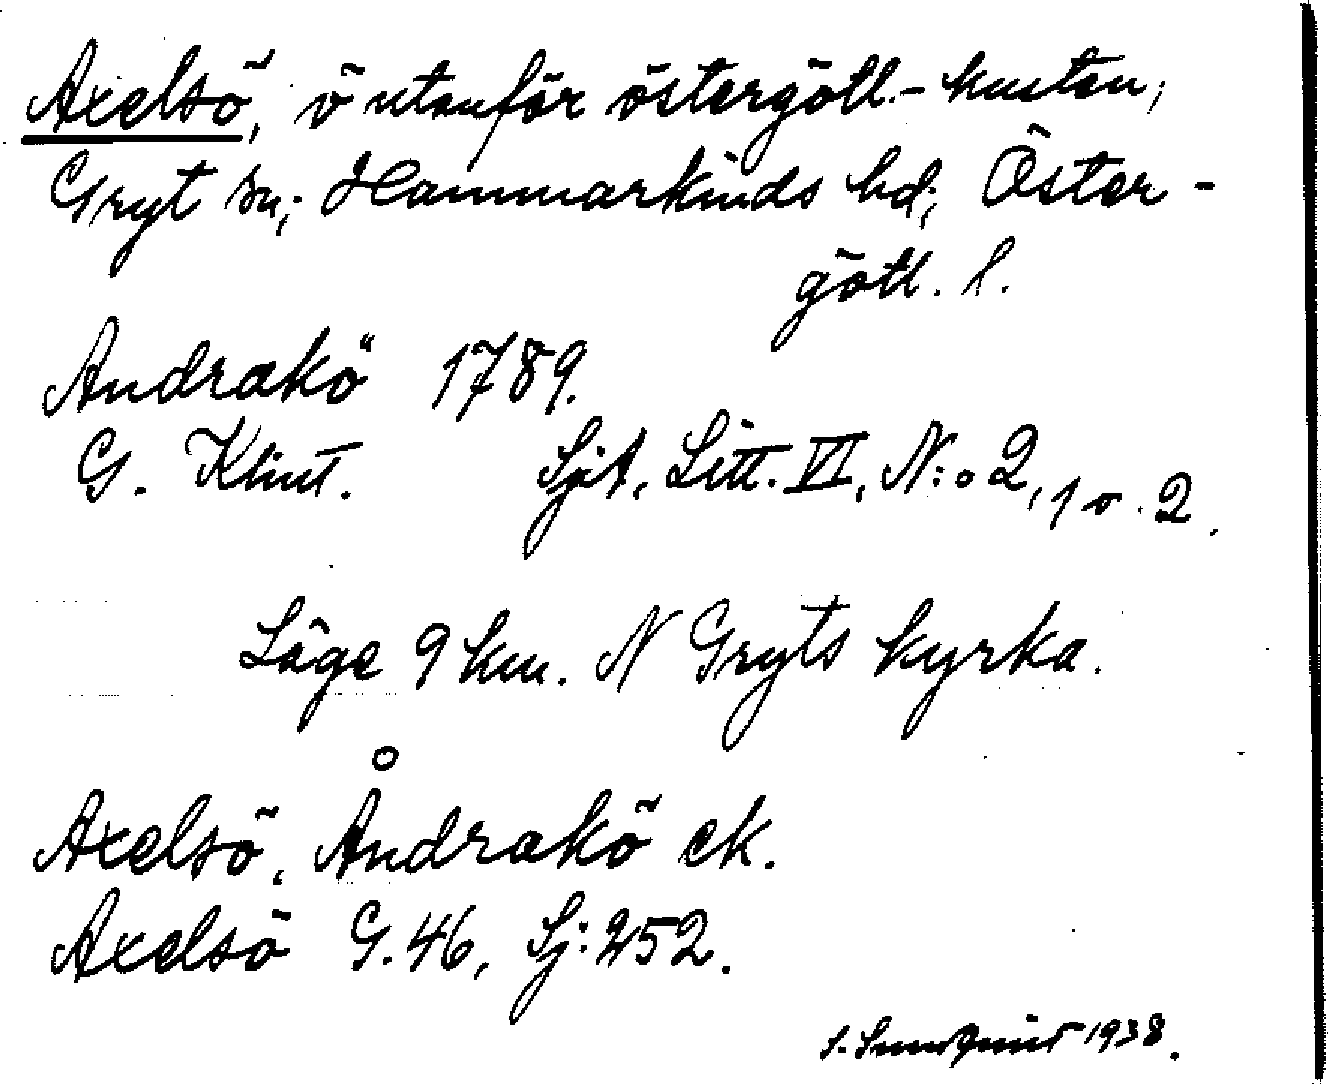 Axelsö, ö utanför östergötl.-kusten,
Gryt sn; Hammarkinds hd; Öster-
götl. l.
Andrakö 1789.
G. Klint. Sjöt, Litt. VI, N:o 2, 1 o. 2.
Läge 9 km. N Gryts kyrka.
Axelsö, Åndrakö ek.
Axelsö G.46, Sj:252.
S. 1938.